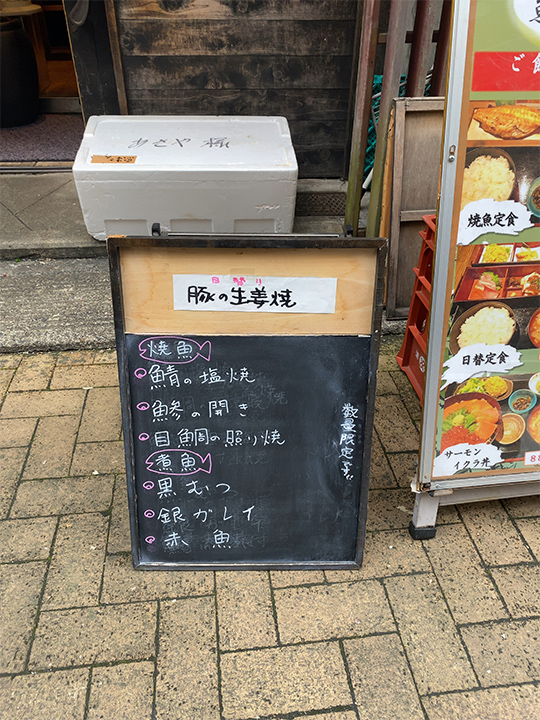 あさや
日替り
豚の生姜焼
焼魚
鯖の塩焼
鯵の開き
目鯛の照り焼
煮魚
黒むつ
銀ガレイ
赤魚
数量限定です!!
焼魚定食
日替定食
サーモン
イクラ丼